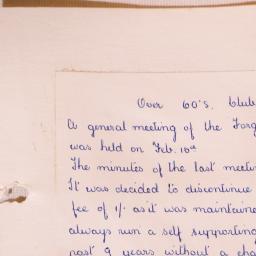 Over 60's. Club
A general meeting of the Forg
was held on Feb. 10th
The minutes of the last meetin
It was decided to discontinue
fee of 1/- as it was maintaine
always run a self supporting
past 9 years without a cha